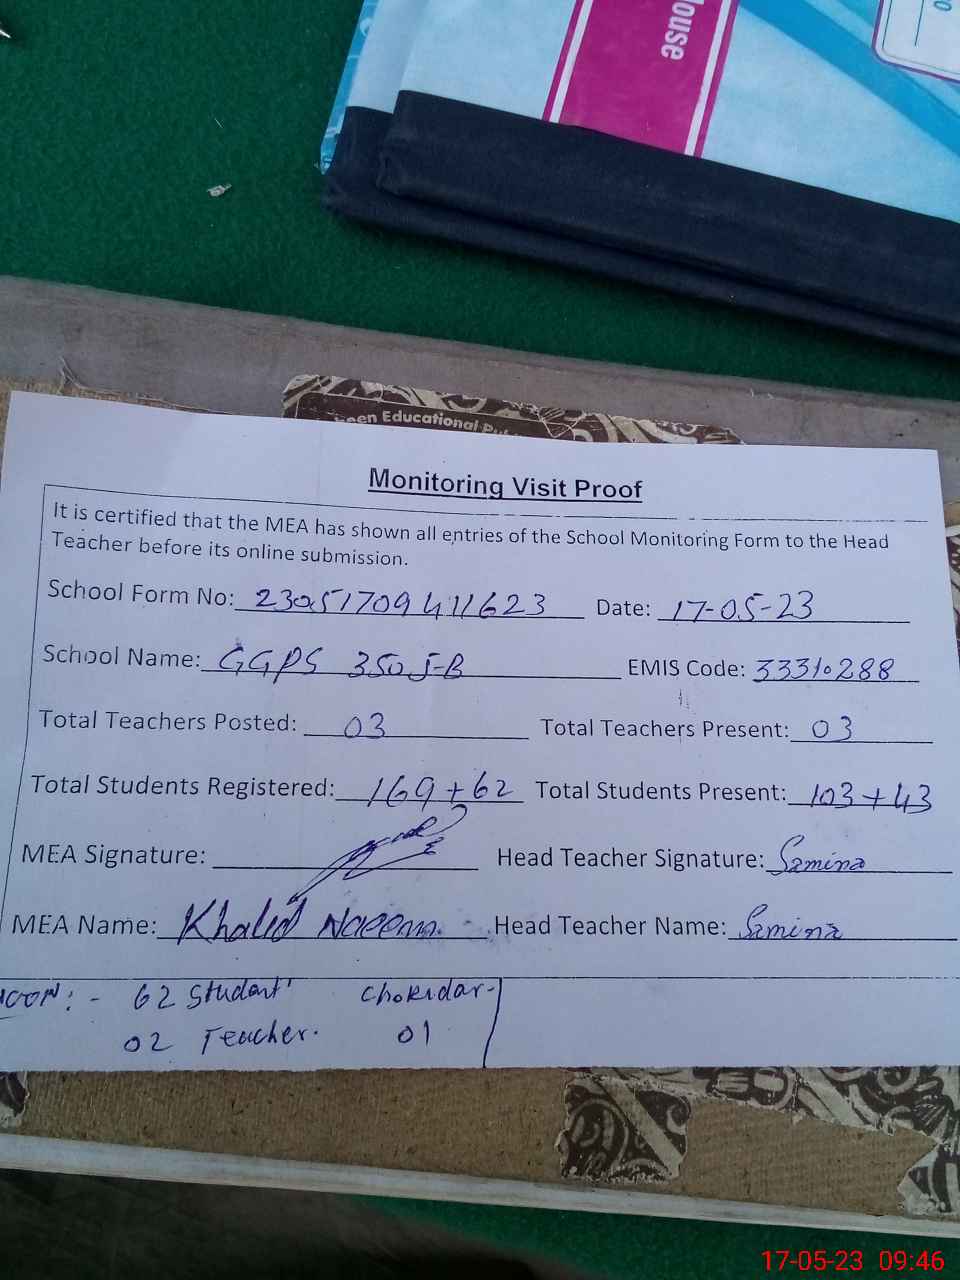 House
een Educational Pu
Monitoring Visit Proof
It is certified that the MEA has shown all entries of the School Monitoring Form to the Head
Teacher before its online submission.
School Form No: 23051709411623 Date: 17-05-23
School Name: GGPS 350 J-B EMIS Code: 33310288
Total Teachers Posted: 03 Total Teachers Present: 03
Total Students Registered: 169+62 Total Students Present: 103+43
MEA Signature: Head Teacher Signature: Samina
MEA Name: Khalid Naeem Head Teacher Name: Samina
:- 62 Student Chokidar-
02 Teacher. 01
17-05-23 09:46